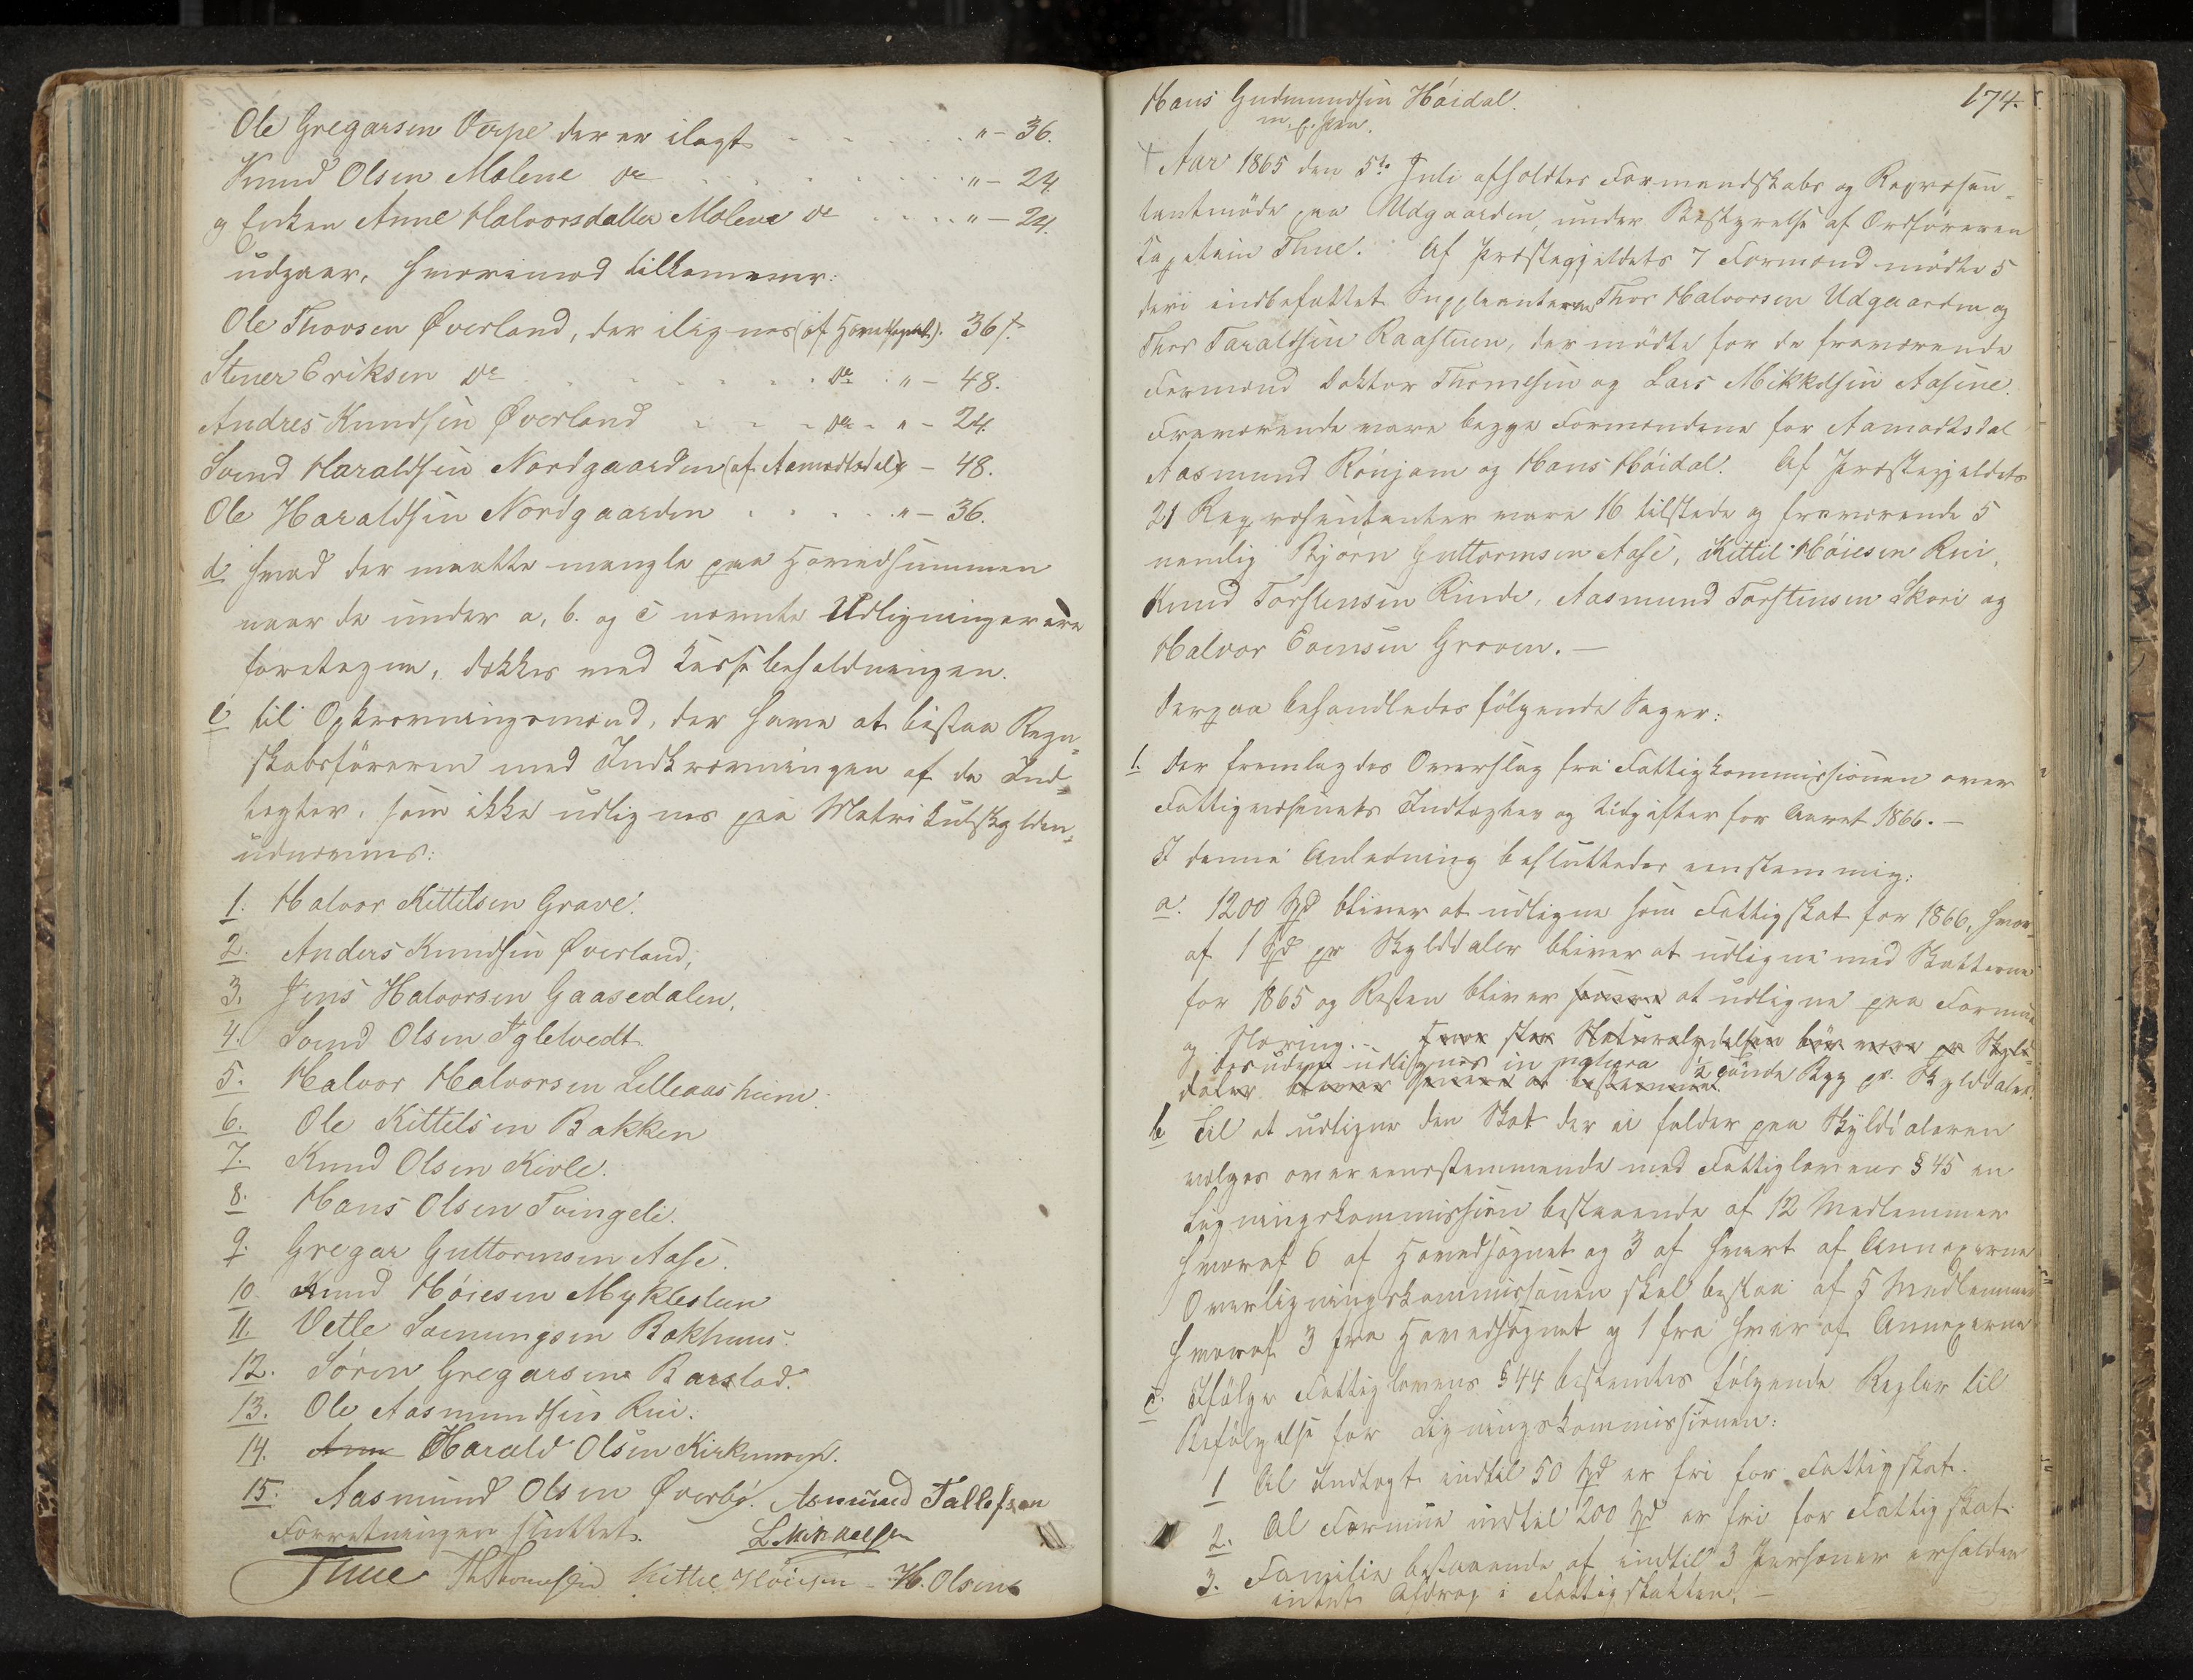 Ole Gregarsen Verpe der er ilagt - - - - - " - 36.
Knud Olsen Molene do - - - - - " - 24
og Enken Anne Halvorsdatter Molene do - - - - " - 24.
udgaar, hvorimod tilkommer:
Ole Thovsen Øverland, der ilignes (af Hovedsognet). 36 s.
Stener Eriksen do - - - - - do " - 48.
Andres Knudsen Øverland - - - do - " - 24.
Svend Haraldsen Nordgaarden (af Aamodtsdal) " - 48.
Ole Haraldsen Nordgaarden - - - - - " - 36.
d. Hvad der maatte mangle paa Hovedsummen
naar de under a, b. og c nævnte Udligninger ere
foretagne, dækkes med Kassebeholdningen.
e til Opkrævningsmænd, der have at bistaa Regn-
skabsføreren med Indkrævningen af de Ind-
tægter, som ikke udlignes paa Matrikulskylden,
udnævnes:
1. Halvor Kittilsen Grave.
2. Anders Knudsen Øverland,
3. Jens Halvorsen Gaasedalen,
4. Svend Olsen Igletvedt.
5. Halvor Halvorsen Lilleaasheim.
6. Ole Kittelsen Bakken
7. Knud Olsen Kivle.
8. Hans Olsen Tvingeli.
9. Gregar Guttormsen Aase.
10. Knud Høiesen Myklestuen
11. Vetle Sveinungsen Bakhuus.
12. Sören Gregarsen Barstad.
13. Ole Aasmundsen Rui.
14. Harald Olsen Kirkevold.
15. Aasmund Olsen Øverbø. Asmund Tallefsen
Forretningen sluttet. L Mikkelsen
Thue Th Thomesen Kittil Høiesen - H. Olsen
174.
Hans Gudmundsen Høidal.
m. f. Pen.
+ Aar 1865 den 5te Juli afholdtes Formandskabs og Repræsen-
tantmöde paa Udgaarden, under Bestyrelse af Ordföreren
Capitain Thue. Af Præstegjeldets 7 Formænd mödte 5
deri indbefattet Suppleanterne Thor Halvorsen Udgaarden og
Thor Taraldsen Raastuen, der mödte for de fraværende
Formænd Doktor Thomesen og Lars Mikkelsen Aasene.
Fraværende vare begge Formændene for Aamodtsdal
Aasmund Rönjom og Hans Høidal. Af Præstegjeldets
21 Repræsentanter vare 16 tilstede og fraværende 5
nemlig Bjørn Guttormsen Aase, Kittil Høiesen Rui,
Knud Torstensen Rinde, Aasmund Torstensen Skori og
Halvor Evensen Groven. -
Derpaa behandledes følgende Sager:
1. Der fremlagdes Overslag fra Fattigkommissionen over
Fattigvæsenets Indtægter og Udgifter for Aaret 1866. -
I denne Anledning besluttedes eenstemmig:
a. 1200 Spd bliver at udligne som Fattigskat for 1866, hvor-
af 1 Spd pr Skylddaler bliver at udligne med Skatterne
for 1865 og Resten bliver senere at udligne paa Formue
og Næring. Hvor stor Naturalydelsen bör være pr Skyld-
desuden udlignes in natura ½ Tönde Byg pr. Skylddaler.
daler bliver senere at bestemme.
b Til at udligne den Skat der ei falder paa Skylddaleren
vælges overeensstemmende med Fattiglovens § 45 en
Ligningskommission bestaaende af 12 Medlemmer
hvoraf 6 af Hovedsognet og 3 af hvert af Annexerne
Overligningskommissionen skal bestaa af 5 Medlemmer
hvoraf 3 fra Hovedsognet og 1 fra hver af Annexerne
c. Ifölge Fattiglovens § 44 bestemtes følgende Regler til
Befölgelse for Ligningskommissionen:
1 Al Indtægt indtil 50 Spd er fri for Fattigskat.
2. Al Formue indtil 200 Spd er fri for Fattigskat
3. Familie bestaaende af indtil 3 Personer erholder
intet Afdrag i Fattigskatten. -